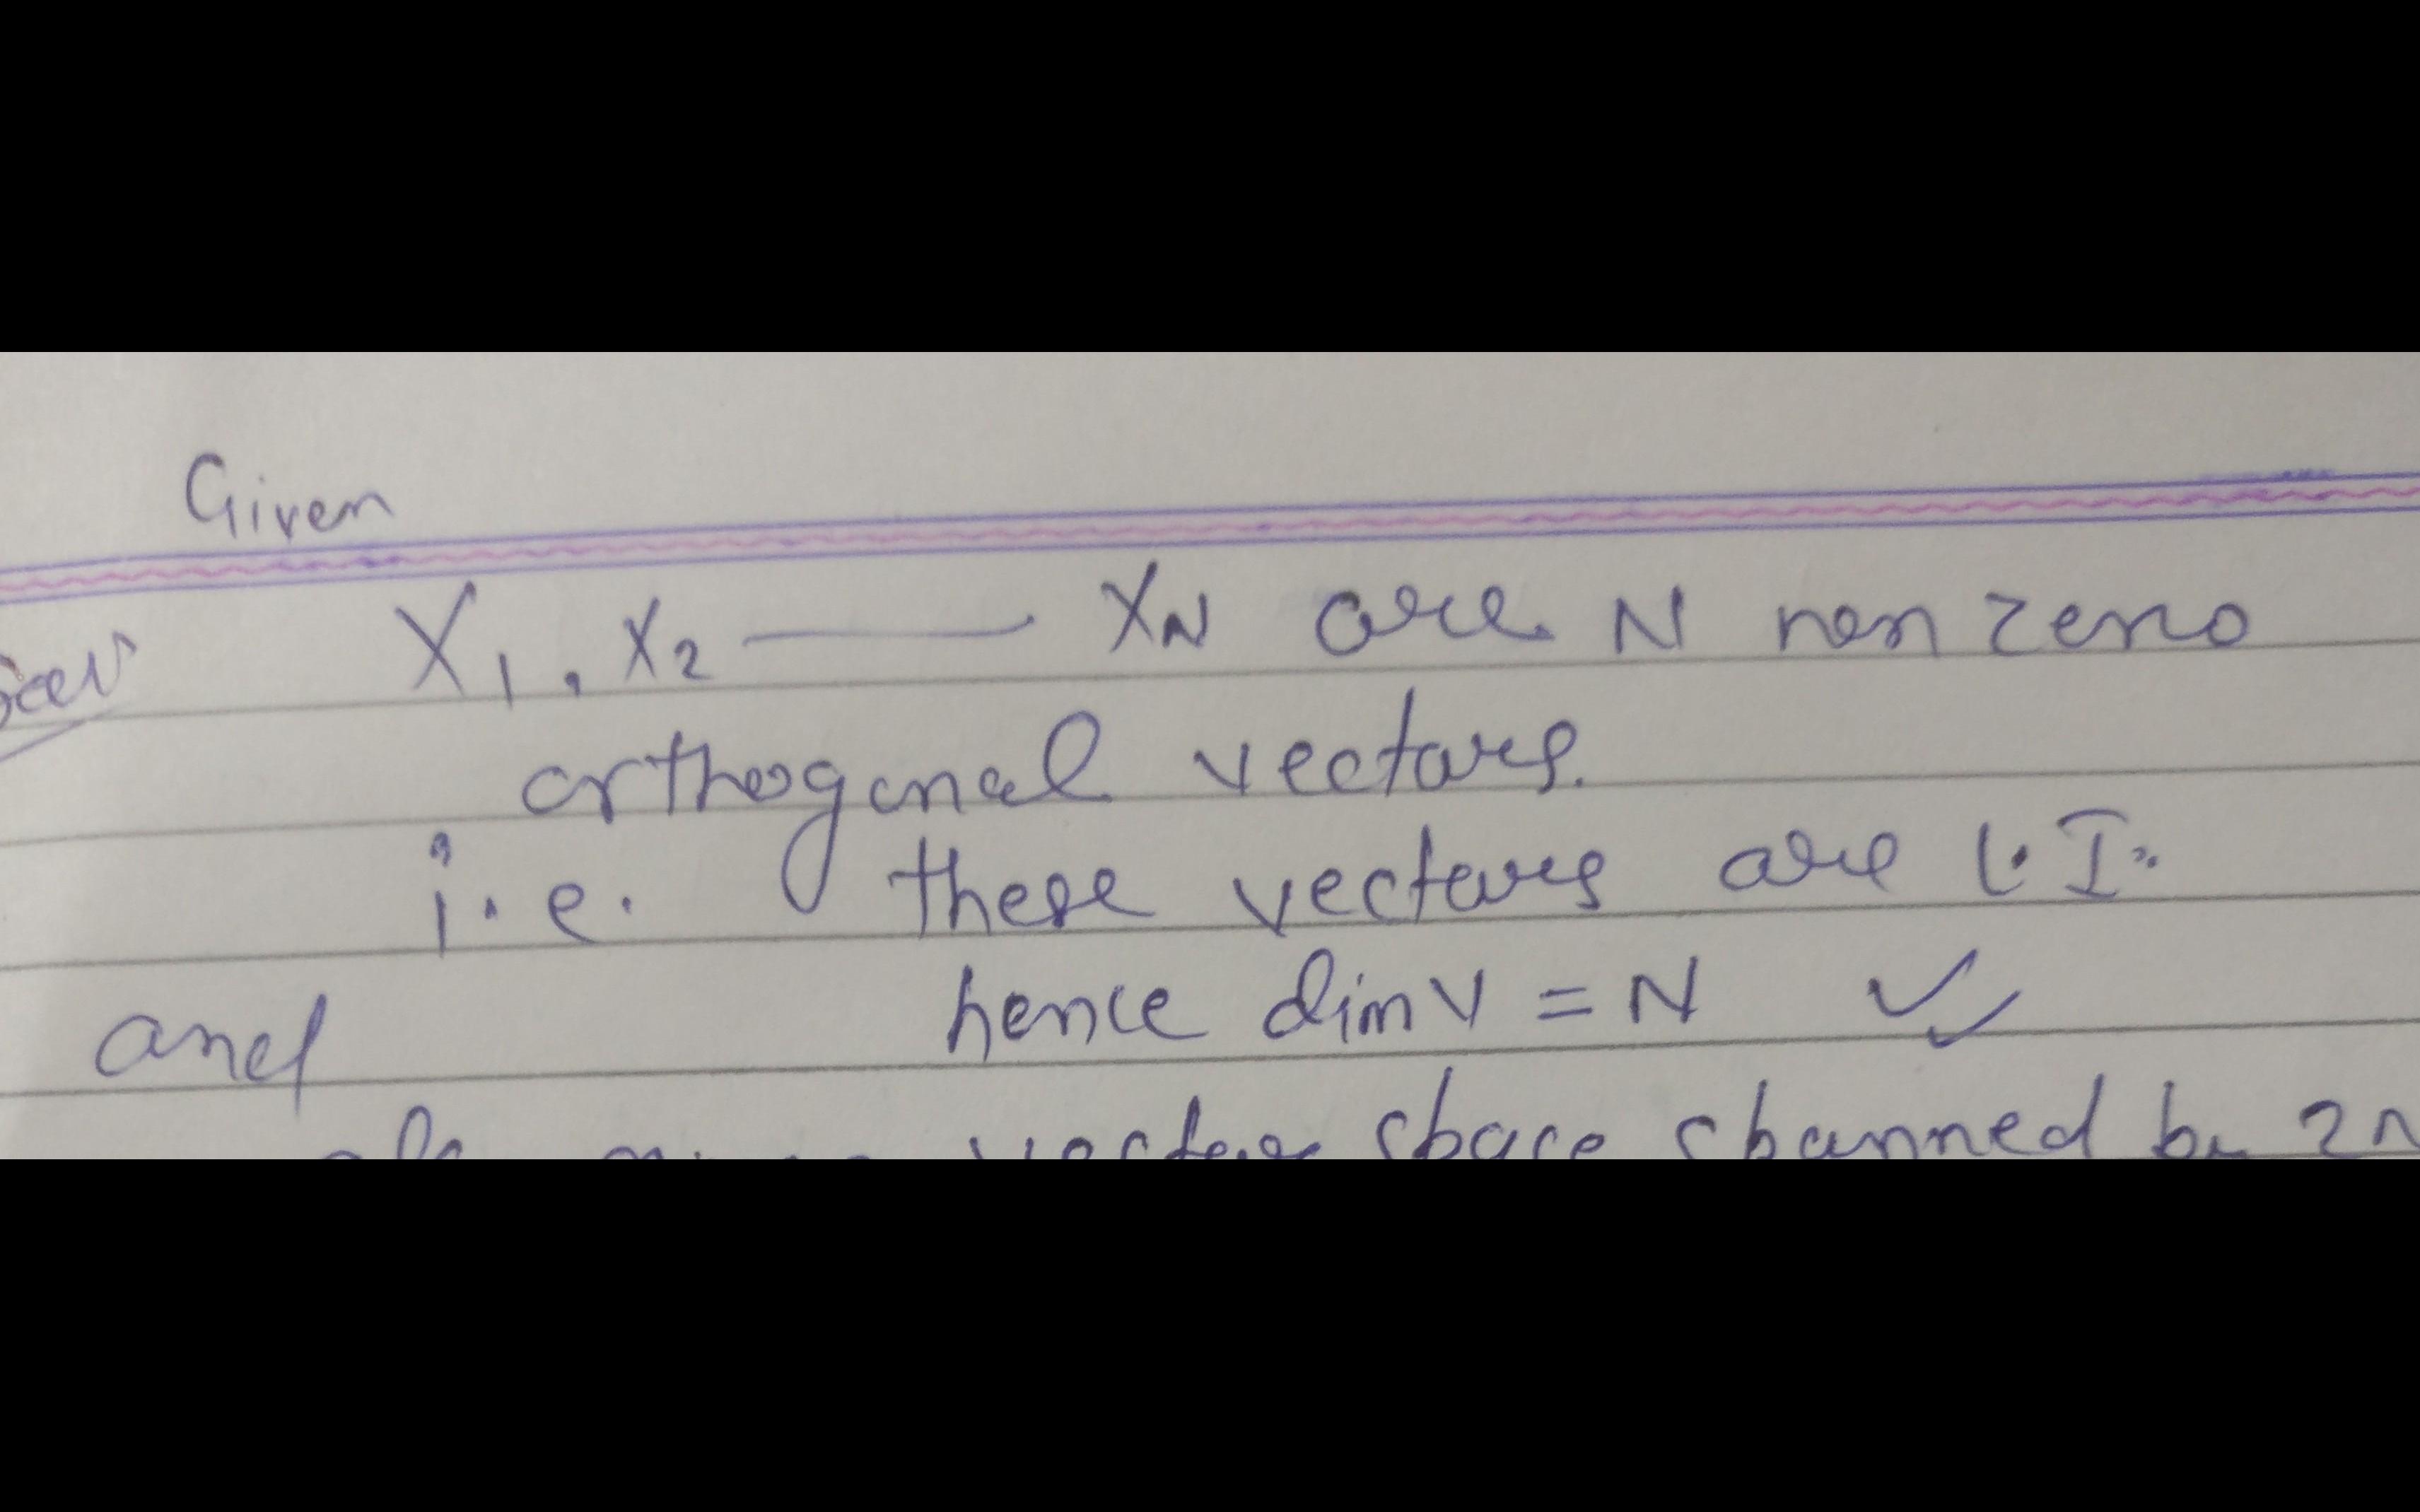 Given
X1, X2 —— XN are N non zero
orthogonal vectors.
i.e. these vectors are L.I.
hence dim V = N
and
vector space spanned by 2n